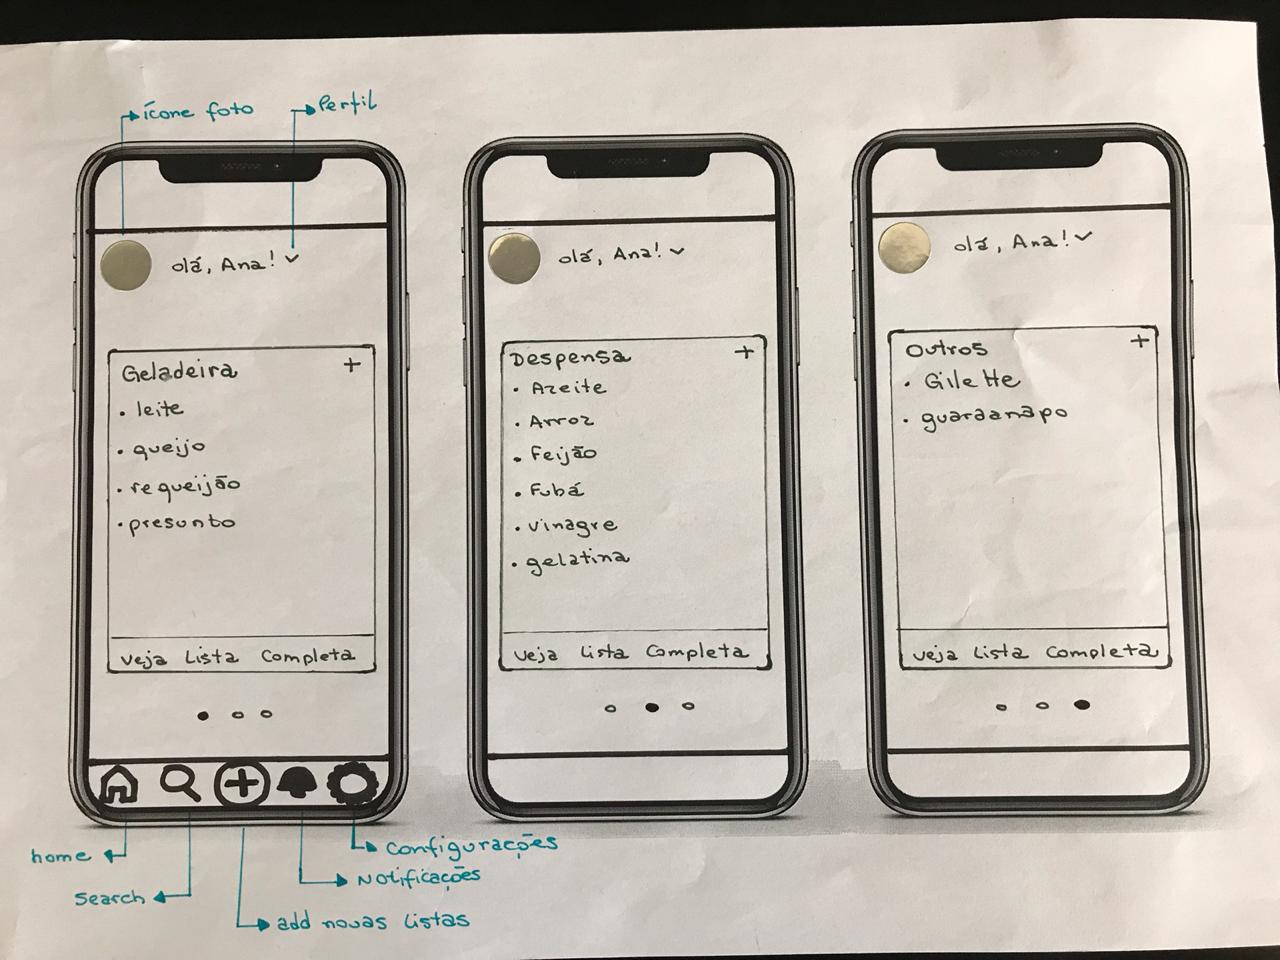 ícone foto
Perfil
olá, Ana!
Geladeira +
• leite
• queijo
• requeijão
• presunto
Veja Lista Completa
home
Search
add novas listas
Notificações
Configurações
olá, Ana!
Despensa +
• Azeite
• Arroz
• Feijão
• Fubá
• vinagre
• gelatina
Veja Lista Completa
olá, Ana!
Outros +
• Gilette
• guaraanapo
Veja Lista Completa